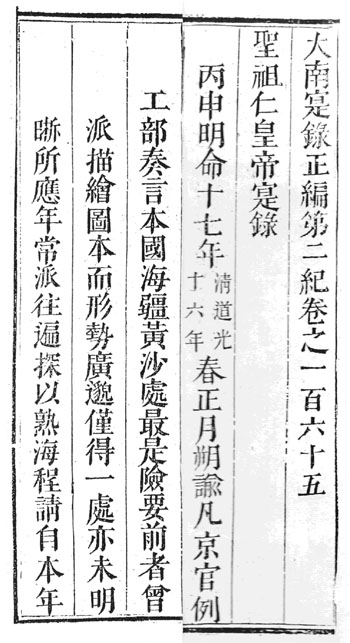 大南寔錄正編第二紀卷之一百六十五
聖祖仁皇帝寔錄
丙申明命十七年清道光十六年春正月朔諭凡京官例
工部奏言本國海疆黃沙處最是險要前者曾
派描繪圖本而形勢廣邈僅得一處亦未明
晣所應年常派往遍探以熟海程請自本年